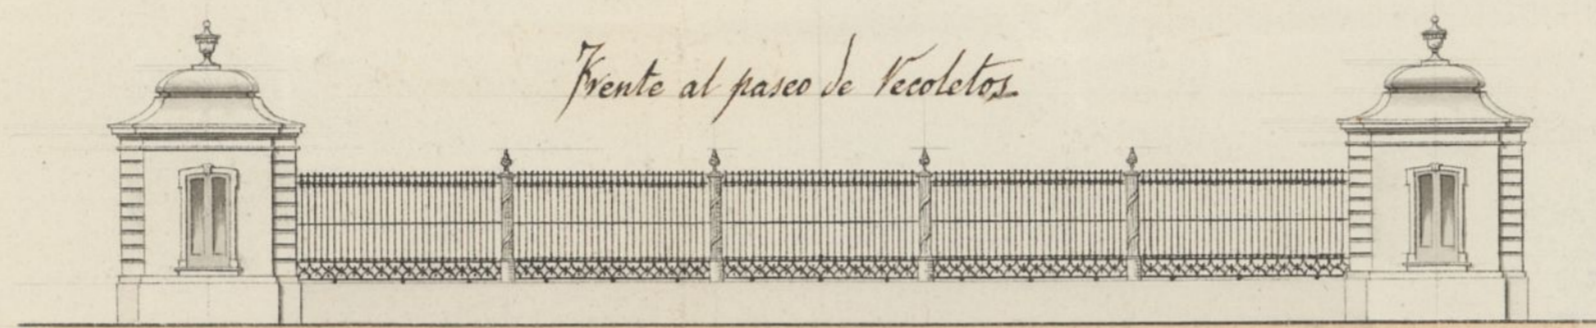 Frente al paseo de Recoletos